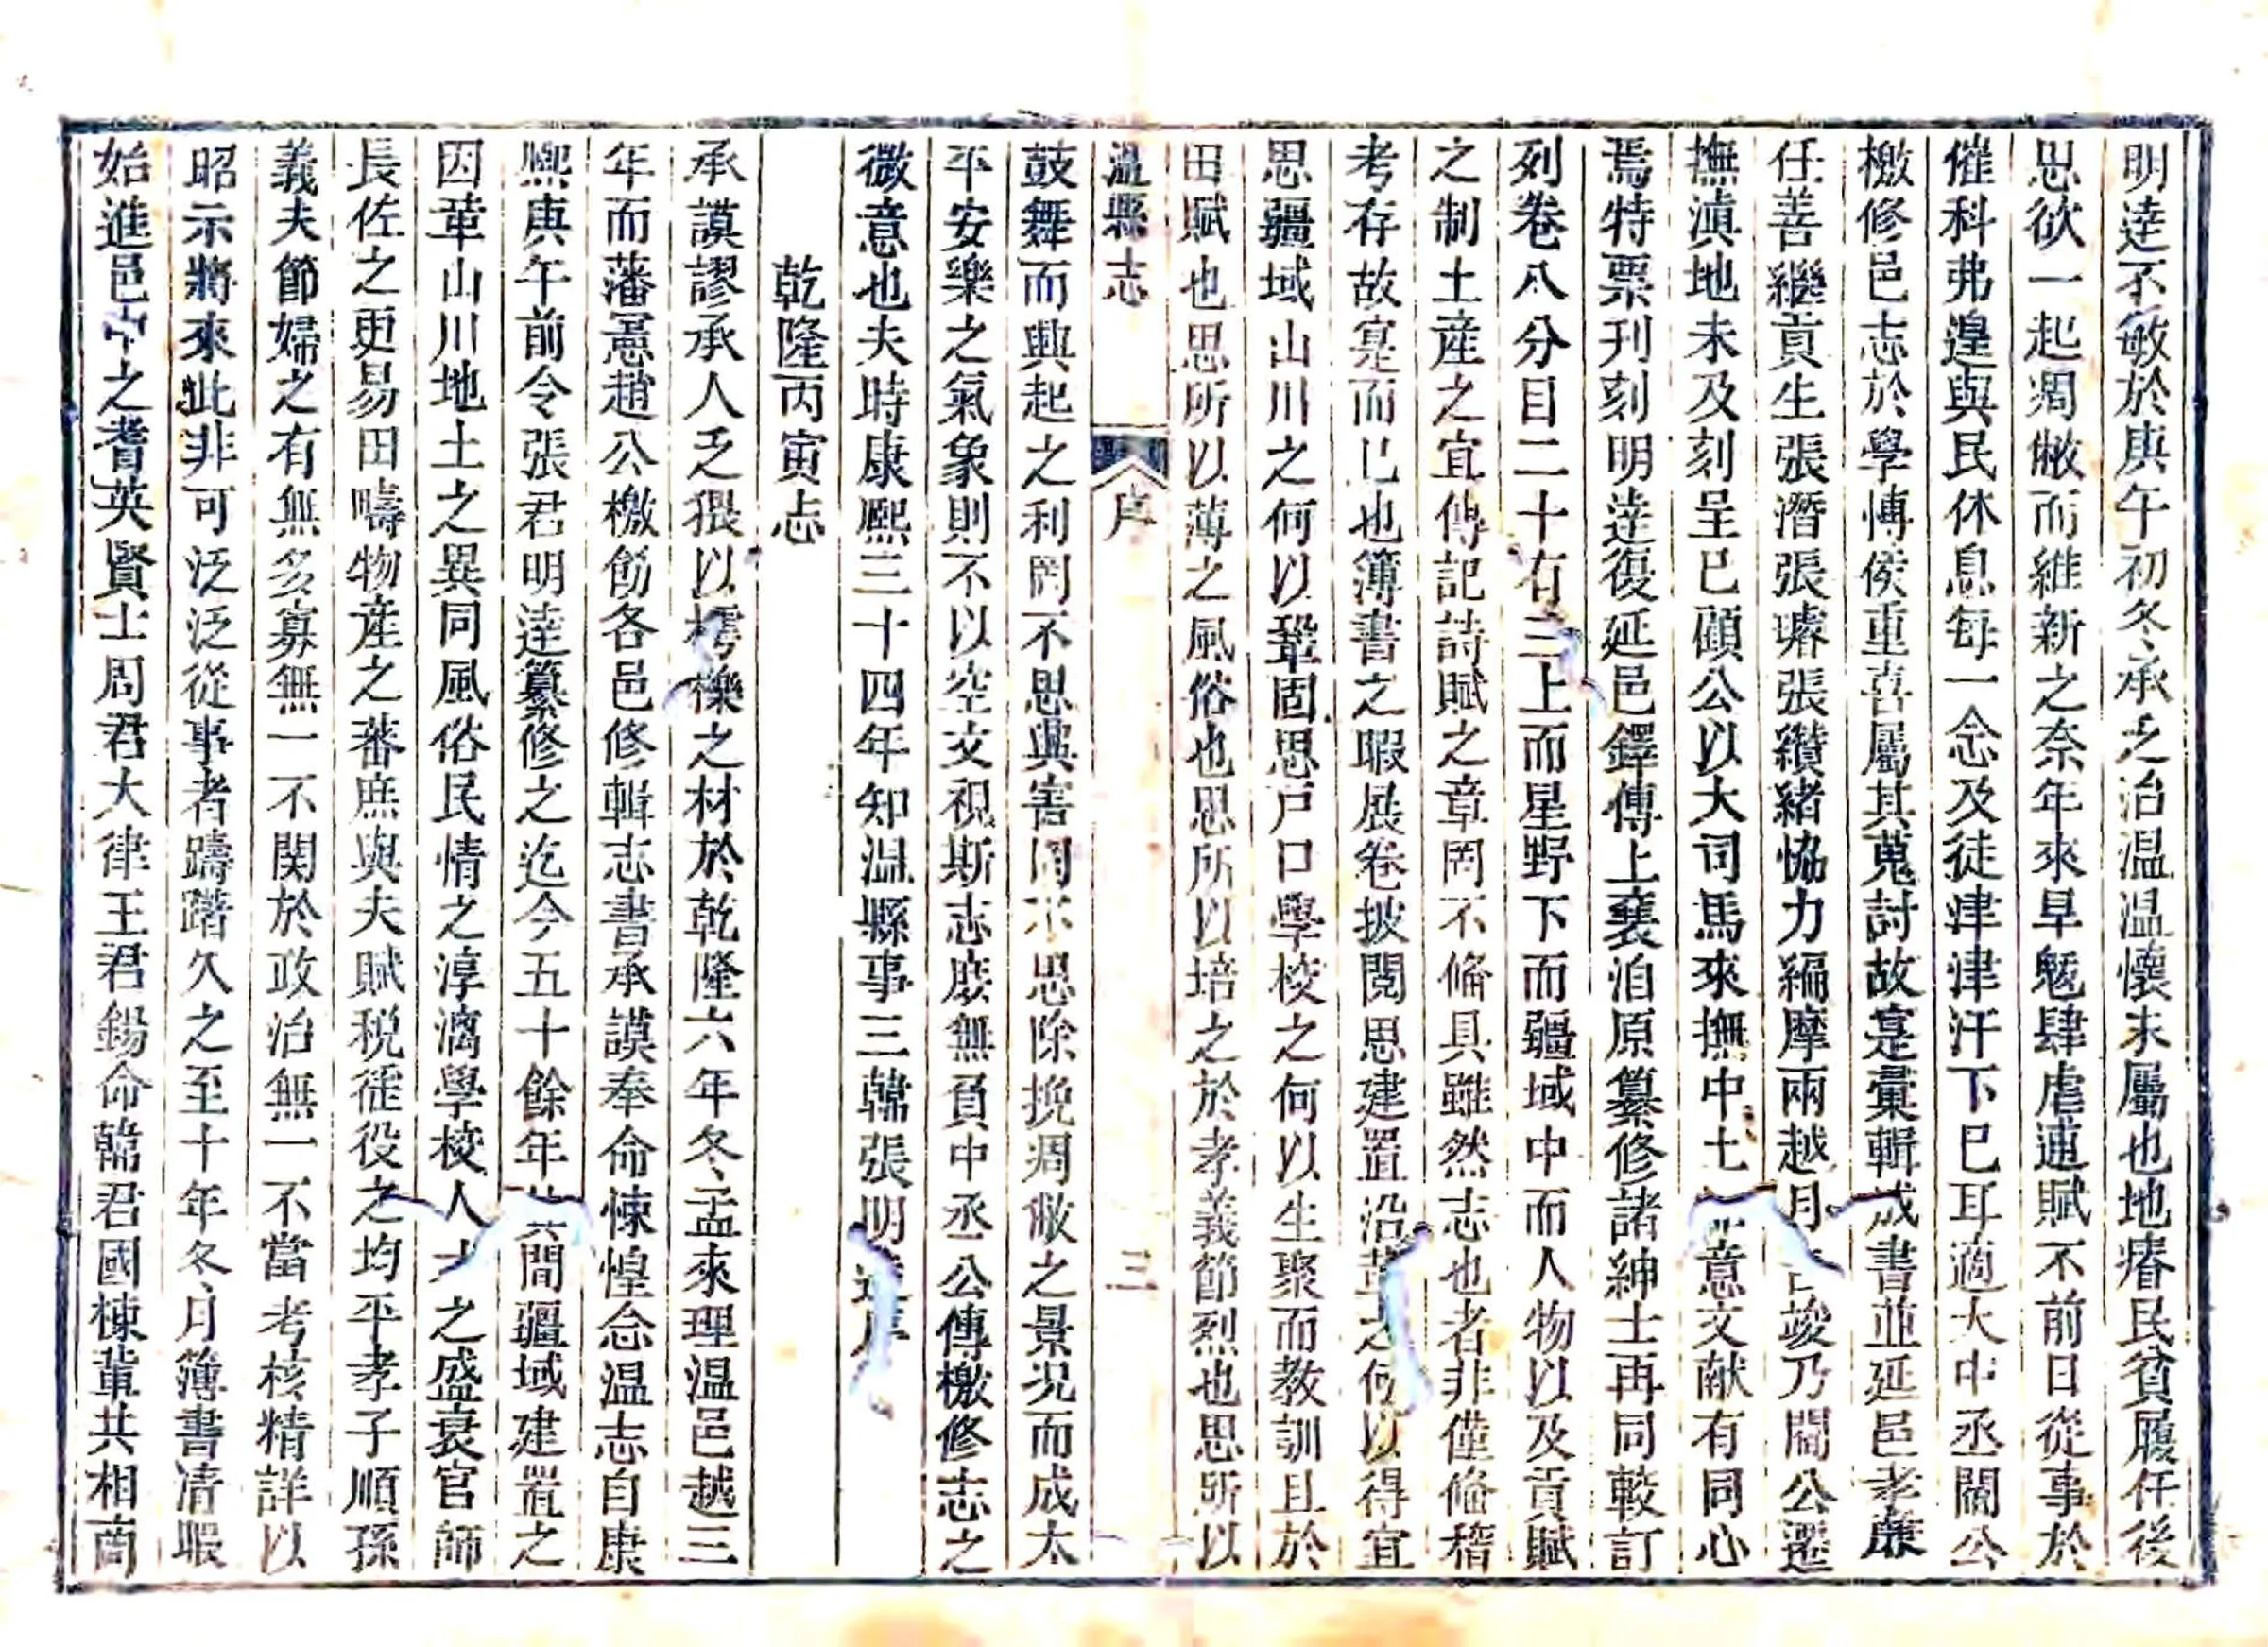 明逹不敏於庚午初冬承乏治温温懷末屬也地瘠民貧履任後
思欲一起凋敝而維新之奈年來旱魃肆虐逋賦不前日從事於
催科弗遑與民休息每一念及徒津津汗下已耳適大中丞閻公
檄修邑志於學博侯重喜屬其蒐討故寔彚輯成書並延邑孝亷
任善繼貢生張潛張璿張纘緒恊力編摩兩越月竣乃閻公遷
撫滇地未及刻呈已顧公以大司馬來撫中土意文献有同心
焉特票刊刻明逹復延邑鐸傅上襄洎原纂修諸紳士再同較訂
列卷八分目二十有三上而星野下而疆域中而人物以及貢賦
之制土產之宜傳記詩賦之章罔不備具雖然志也者非僅備稽
考存故寔而已也簿書之暇展卷披閱思建置沿革之何以得宜
思疆域山川之何以鞏固思戸口學校之何以生聚而教訓且於
田賦也思所以薄之風俗也思所以培之於孝義節烈也思所以
温縣志 序 三
鼓舞而興起之利罔不思興害罔不思除挽凋敝之景况而成太
平安樂之氣象則不以空文視斯志庶無負中丞公傳檄修志之
微意也夫時康熙三十四年知温縣事三韓張明逹序
乾隆丙寅志
承謨謬承人乏猥以樗櫟之材於乾隆六年冬孟來理温邑越三
年而藩憲趙公檄飭各邑修輯志書承謨奉命悚惶念温志自康
熙庚午前令張君明逹纂修之迄今五十餘年其間疆域建置之
因革山川地土之異同風俗民情之淳漓學校人才之盛衰官師
長佐之更易田疇物產之蕃庶與夫賦税徭役之均平孝子順孫
義夫節婦之有無多寡無一不関於政治無一不當考核精詳以
昭示將來此非可泛泛從事者躊躇久之至十年冬月簿書清暇
始進邑中之耆英賢士周君大律王君錫命韓君國棟軰共相啇